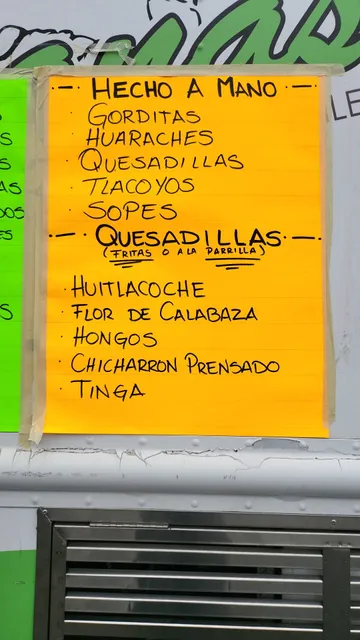 -- HECHO A MANO --
· GORDITAS
· HUARACHES
· QUESADILLAS
· TLACOYOS
· SOPES
-- QUESADILLAS --
(FRITAS O A LA PARRILLA)
· HUITLACOCHE
· FLOR DE CALABAZA
· HONGOS
· CHICHARRON PRENSADO
· TINGA